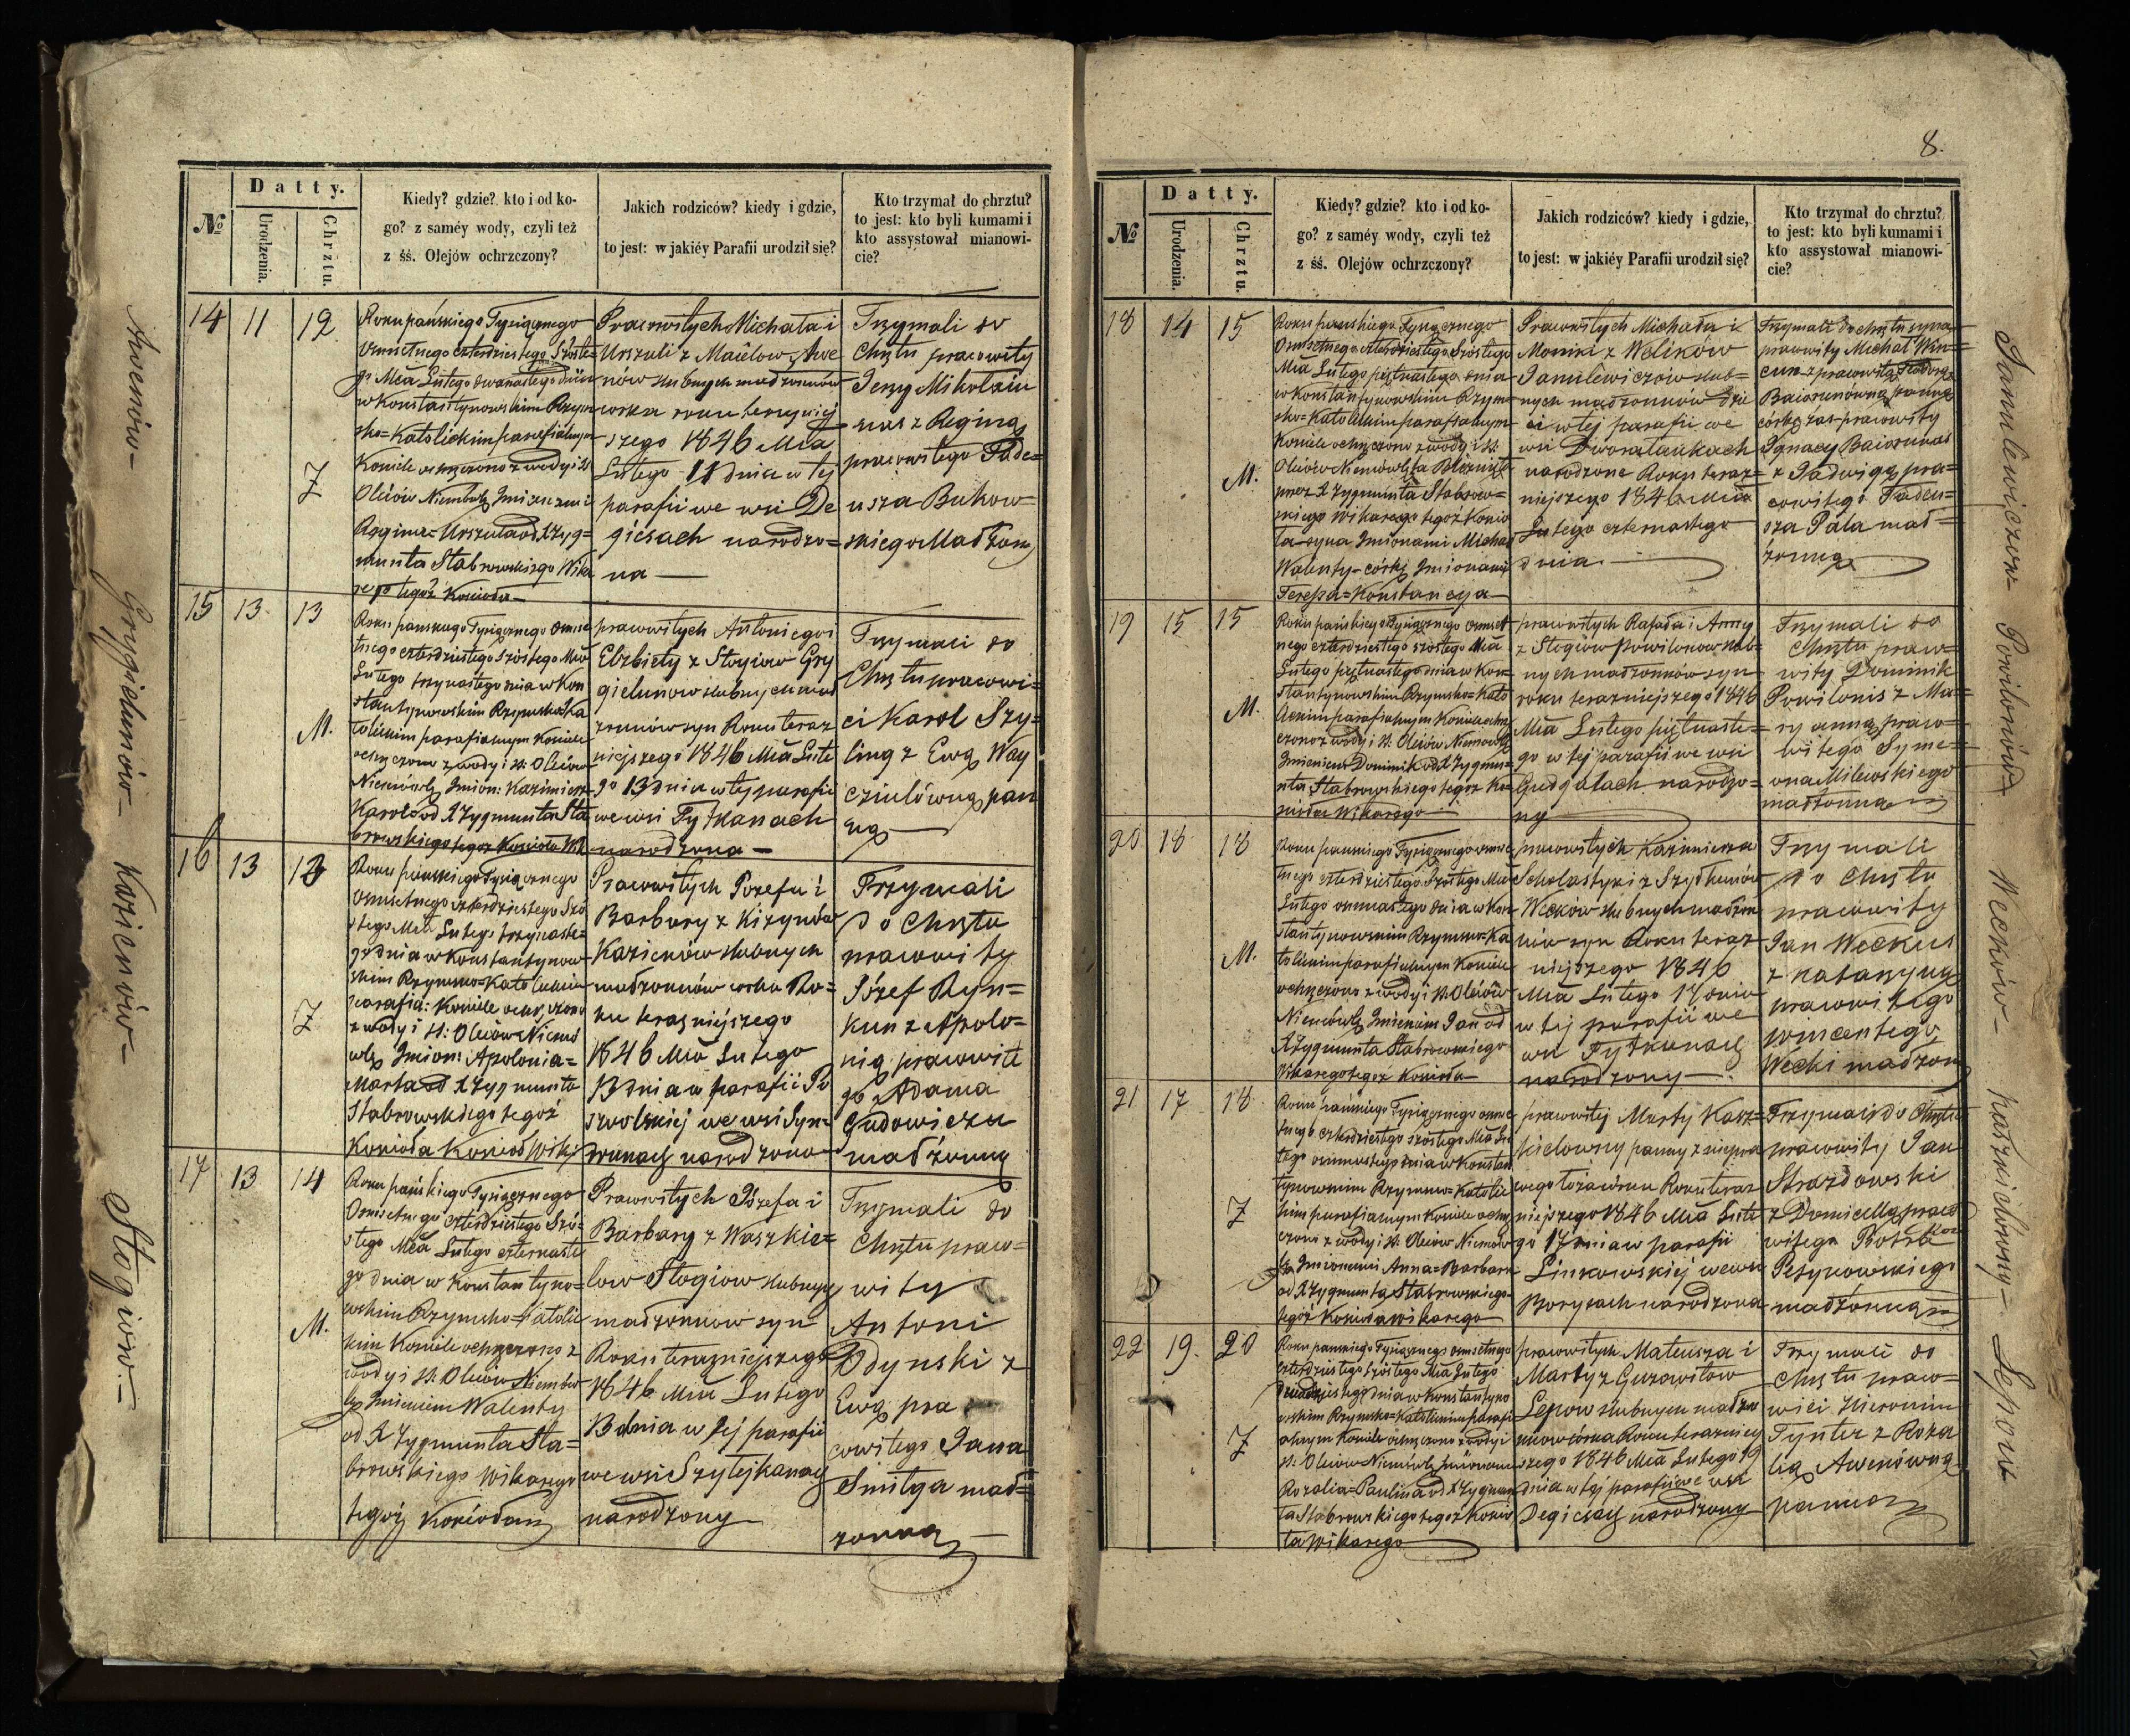 8.
Datty.
№
Urodzenia.
Chrztu.
Kiedy? gdzie? kto i od ko-
go? z saméy wody, czyli też
z śś. Olejów ochrzczony?
Jakich rodziców? kiedy i gdzie,
to jest: w jakiéy Parafii urodził się?
Kto trzymał do chrztu?
to jest: kto byli kumami i
kto assystował mianowi-
cie?
Awenów-
14 11 12
Ż
Roku pańskiego Tysiącznego
Osmsetnego czterdziestego Szóste-
go Mca Lutego dwunastego dnia
w Konstantynowskim Rzym-
sko=Katolickim parafialnym
Kościele ochrzczono z wody i SS
Olejów Niemowlę Imionami
Regina=Urszula od X Zyg=
munta Stabrowskiego Wika
rego tegoż Kościoła
Pracowitych Michała i
Urszuli z Maulow Awe
nów slubnych małżonków
corka roku teraźniej
szego 1846 Mca
Lutego 11 dnia w tej
parafii we wsi De
giesach narodzo=
na
Trzymali do
Chrztu pracowity
Jerzy Mikolaiu
nas z Reginą
pracowitego Tade=
usza Bukow=
skiego Małżon
Grygielunów-
15 13 13
M.
Roku panskiego Tysiącznego osmse
tnego czterdziestego szóstego Mca
Lutego trzynastego dnia w Kon
stantynowskim Rzymsko=Ka
tolickim parafialnym Kościele
ochrzczono z wody i SS: Olejów
Niemówlę Imion: Kazimierz
Karol od X Zygmunta Sta
browskiego tegoż Kościoła Wik
pracowitych Antoniego i
Elzbiety z Stogiow Gry
gielunow slubnych mał
zonków syn Roku teraz
niejszego 1846 Mca Lute
go 13 dnia w tej parafii
we wsi Tyżkanach
narodzona
Trzymali do
Chrztu pracowi=
ci Karol Szy=
ling z Ewą Way
cziulówną pan
ną
Kazienów-
16 13 13
Ż
Roku panskiego Tysiącznego
Osmsetnego czterdziestego Szó
stego Mca Lutego trzynaste=
go dnia w Konstantynow-
skim Rzymsko=Katolickim
parafia: Kościele ochrzczono
z wody i SS: Olejów Niemo
wlę Imion: Apolonia=
Marta od X Zygmunta
Stabrowskiego tegoż
Kościoła Wik:
Pracowitych Jozefa i
Barbary z Kizynów
Kazienów slubnych
małżonków corka Ro=
ku teraźniejszego
1846 Mca Lutego
13 dnia w parafii Po
szwolskiej we wsi Syn=
narodzona
Trzymali
do Chrztu
pracowity
Józef Ryn=
kun z Apolo=
nią pracowite
go Adama
Gudowicza
małżonną
Stogiow.-
17 13 14
M.
Roku pańskiego Tysiącznego
Osmsetnego czterdziestego Szó-
stego Mca Lutego czternaste
go dnia w Konstantyno=
wskim Rzymsko=Katolic
kim Kościele ochrzczono z
wody i SS: Olejów Niemow
lę Imieniem Walenty
od X Zygmunta Sta=
browskiego Wikarego
tegoż Kościoła
Prawitych Józefa i
Barbary z Waszkie=
low Stogiow slubnych
małżonkow syn
Roku teraźniejszego
1846 Mca Lutego
13 dnia w tej parafii
we wsi Szytejkanach
narodzony
Trzymali do
Chrztu praw=
wity
Antoni
Odynski z
Ewą pra
cowitego Jana
Smilga mał=
zonną
Datty.
№
Urodzenia.
Chrztu.
Kiedy? gdzie? kto i od ko-
go? z saméy wody, czyli też
z śś. Olejów ochrzczony?
Jakich rodziców? kiedy i gdzie,
to jest: w jakiéy Parafii urodził się?
Kto trzymał do chrztu?
to jest: kto byli kumami i
kto assystował mianowi-
cie?
18 14 15
M.
Roku panskiego Tysiącznego
Osmsetnego czterdziestego Szóstego
Mca Lutego piętnastego dnia
w Konstantynowskim Rzym
sko=Katolickim parafialnym
Kościele ochrzczono z wody i SS.
Olejów Niemowlęta Bliznięt
przez X Zygmunta Stabrow=
skiego Wikarego tegoż Kościo
ła syna Imionami Michał
Walenty - córkę Imionami
Teressa=Konstancya
Prawitych Michała i
Moniki z Welików
Janulewiczów slub=
nych małżonków dzie
ci w tej parafii we
wsi Dworałankach
narodzone Roku teraz=
niejszego 1846 Mca
Lutego czternastego
dnia
Trzymali do chrztu syna
pracowity Michał Win=
cun z pracowitą Teodorą
Baiorunówną panną
córkę zas pracowity
Ignacy Baiorunas
z Jadwigą pra=
cowitego Tadeu=
sza Pala mał=
żonną
Janulewiczow-
19 15 15
M.
Roku pańskiego Tysiącznego osmset
nego czterdziestego szóstego Mca
Lutego piętnastego dnia w Kon=
stantynowskim Rzymsko=Kato
lickim parafialnym Kościele ochrz
czono z wody i SS. Olejów Niemowlę
Imieniem Dominik od X Zygmun=
nta Stabrowskiego tegoż Ko=
ścioła Wikarego
prawitych Rafała i Anny
z Stogiów Powilonow slub=
nych małżonków syn
roku teraźniejszego 1846
Mca Lutego piętnaste=
go w tej parafii we wsi
Gudgalach narodzo=
ny
Trzymali do
Chrztu praw=
wity Dominik
Powilonis z Ma=
ry anną praw=
witego Syme=
ona Milewskiego
małżonną
Powilonów-
20 18 18
M.
Roku panskiego Tysiącznego osmse
tnego czterdziestego Szóstego Mca
Lutego osmnastego dnia w Kon
stantynowskim Rzymsko=Ka
tolickim parafialnym Kościele
ochrzczono z wody i SS. Olejów
Niemówlę Imieniem Jan od
X Zygmunta Stabrowskiego
Wikarego tegoż Kościoła
pracowitych Kazimierza
Scholastyki z Szydłunów
Wecków slubnych małżon
ków syn Roku teraz
niejszego 1846
Mca Lutego 17 dnia
w tej parafii we
wsi Tyżkunach
narodzony
Trzymali
do Chrztu
pracowity
Jan Weckus
z Katarzyną
pracowitego
wincentego
Wecki małżon
Weckow-
21 17 18
Ż
Roku pańskiego Tysiącznego osmse
tnego czterdziestego szóstego Mca Lu
tego osmnastego dnia w Konstan
tynowskim Rzymsko=Katolic
kim parafialnym Kościele ochrz
czono z wody i SS. Olejów Niemow
lę Imionami Anna=Barbara
od X Zygmunta Stabrowskiego
tegoż Kościoła wikarego
prawitej Marty Kasz=
kielowny panny z niepra
wego łoża córka Roku teraz
niejszego 1846 Mca Lute
go 17 dnia w parafii
Linkowskiej we wsi
Borysach narodzona
Trzymali do Chrztu
pracowity Jan
Strazdowski
z Domicellą praco
witego
małżonną
Kaszkielowny-
22 19. 20
Ż
Roku panskiego Tysiącznego osmsetnego
czterdziestego szóstego Mca Lutego
Dwudziestego dnia w Konstantyno
wskim Rzymsko=Katolickim parafi
alnym Kościele ochrzczono z wody i
SS. Olejów Niemowlę Imionami
Rozalia=Paulina od X Zygmun
ta Stabrowskiego tegoż Kościo
ła wikarego
prawitych Mateusza i
Marty z Gurawitow
Lepow slubnych małżon
kow corka Roku teraźniej
szego 1846 Mca Lutego 19
dnia w tej parafii we wsi
Degiesach narodzony
Trzymali do
Chrztu praw=
wici Hieronim
Tynter z Roza
lią Awenówną
panną
Lepow